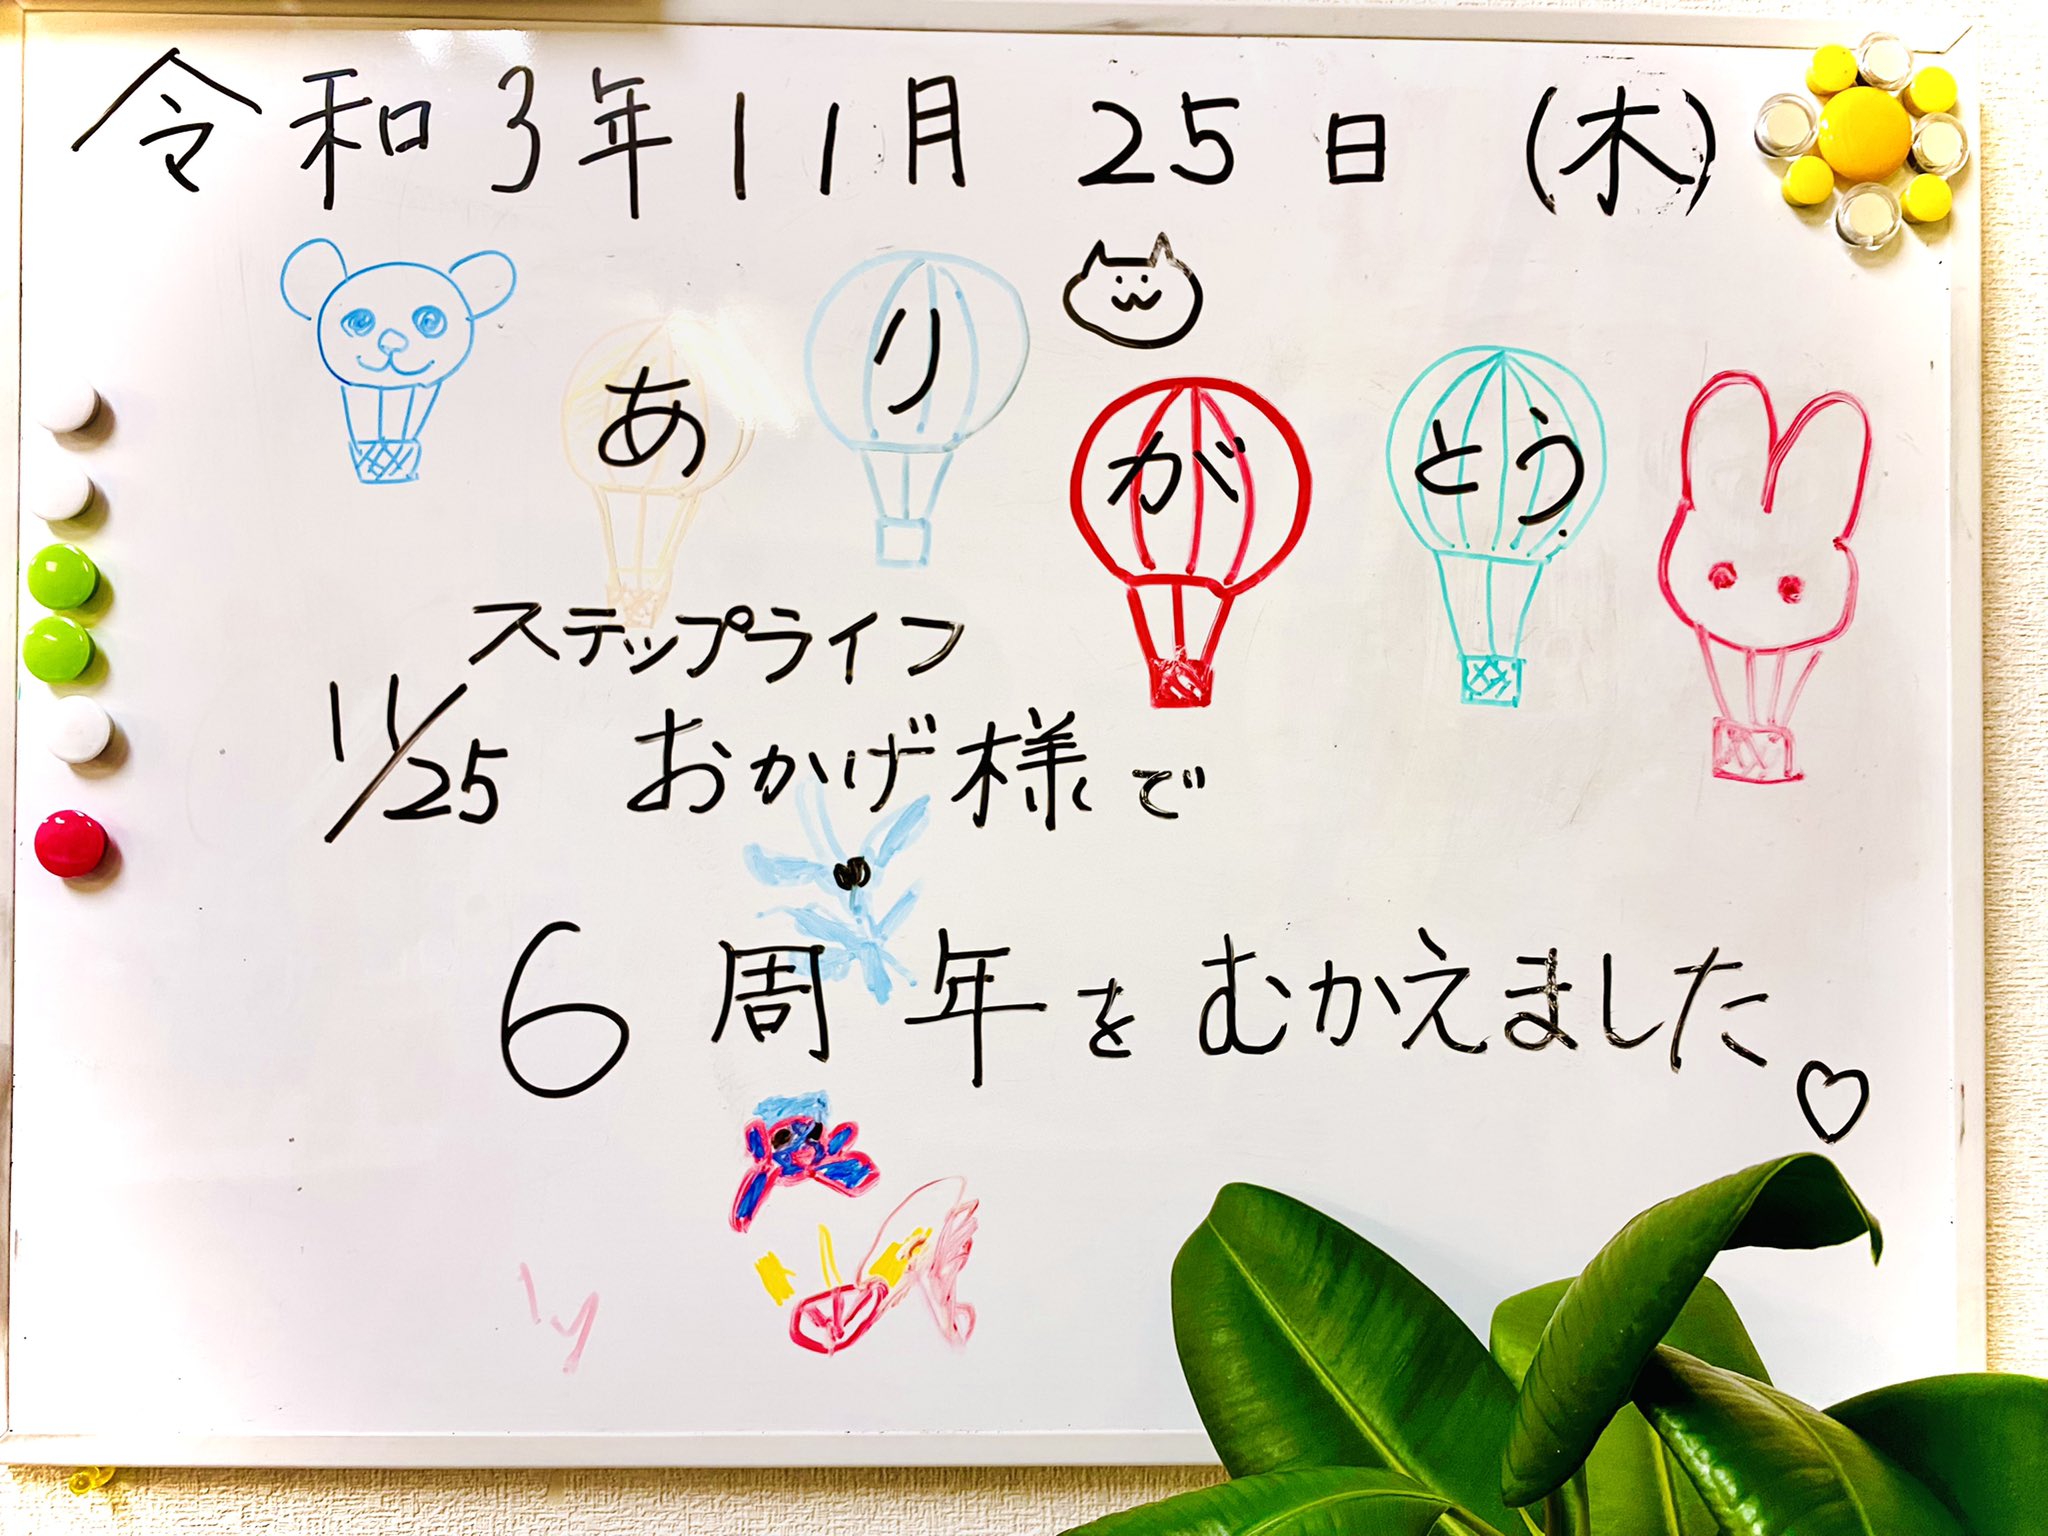 令和3年11月25日(木)
ありがとう
ステップライフ
11/25 おかげ様で
6周年をむかえました♡